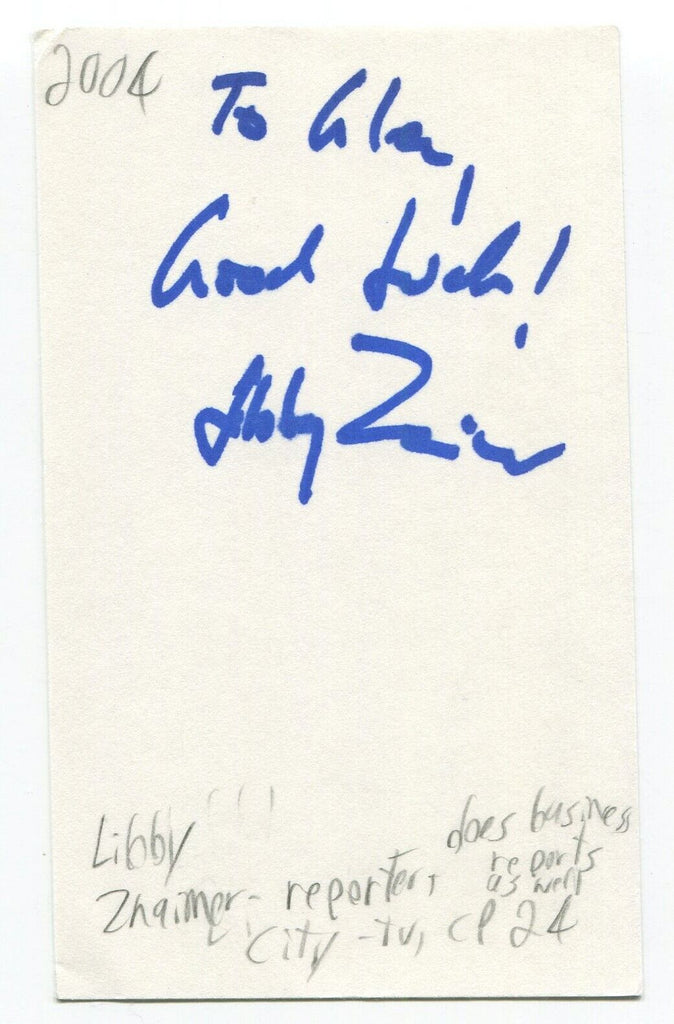 2004
To Alan,
Good Luck!
Libby Znaimer
does business
Libby
reports
Znaimer - reporter, as well
City-tv, CP 24